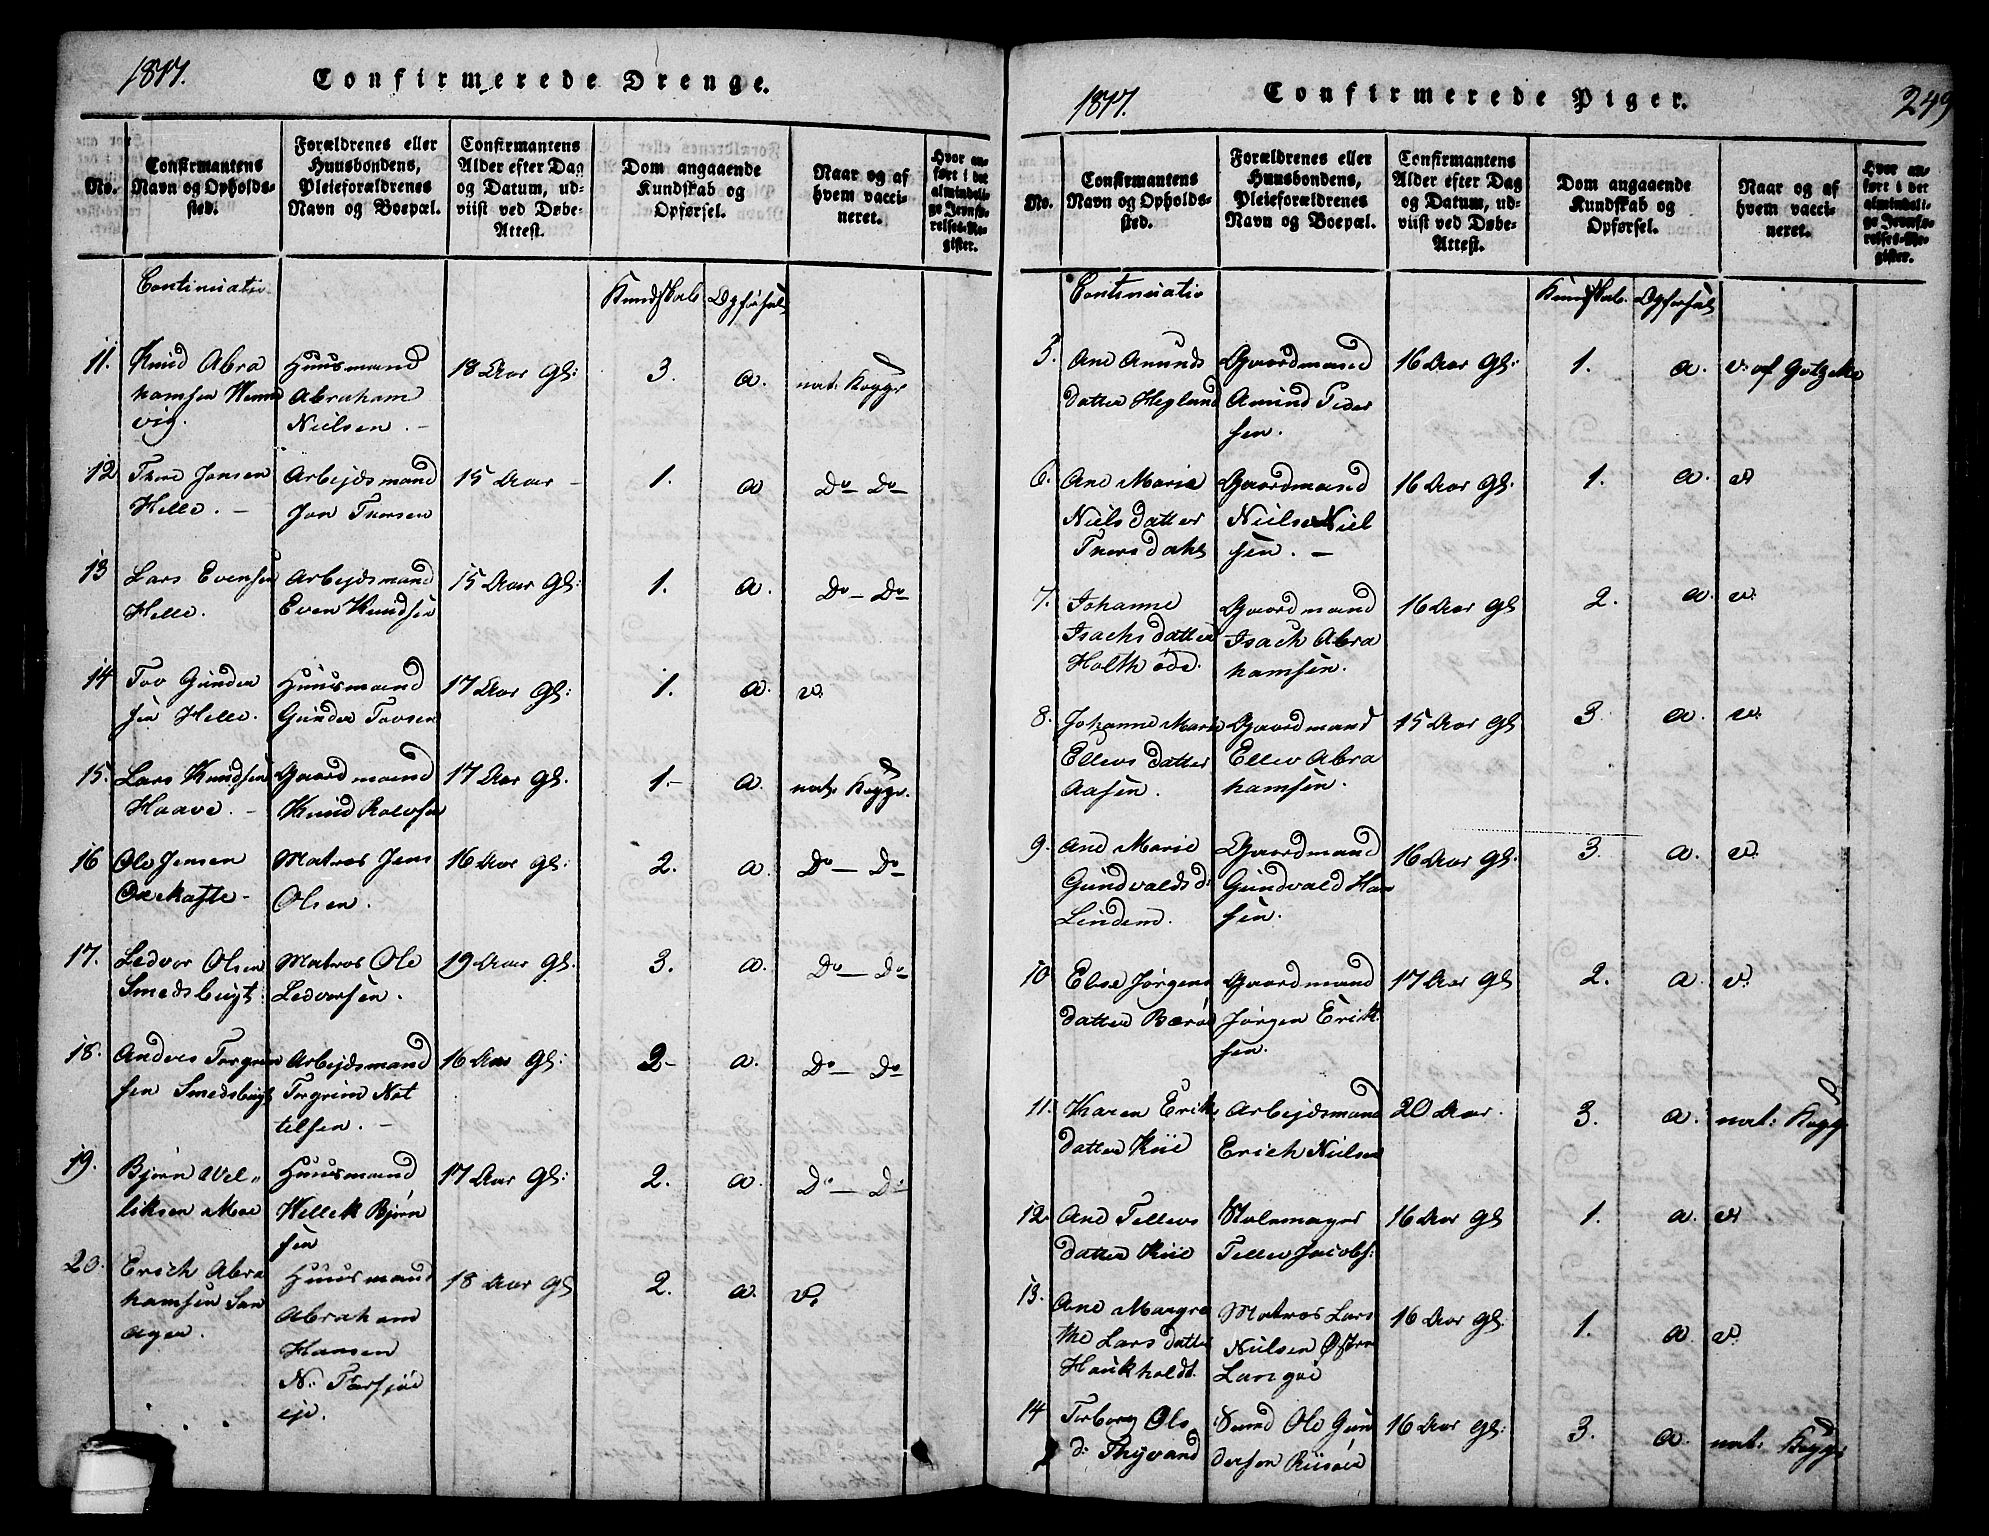 1817.
Confirmerede Drenge.
No.
Confirmantens
Navn og Opholds-
sted.
Forældrenes eller
Huusbondens,
Pleieforældrenes
Navn og Boepæl.
Confirmantens
Alder efter Dag
og Datum, ud-
viist ved Døbe-
Attest.
Dom angaaende
Kundskab og
Opførsel.
Naar og af
hvem vacci-
neret.
Hvor an-
ført i det
almindeli-
ge Jevnfø-
relses-Re-
gister.
Continuatio
Kundskab
Opførsel
11. Knud Abra
hamsen
vig.
Huusmand
Abraham
Nielsen. -
18 Aar Gl:
3.
a.
nat: Kopper
12 Thore Jonsen
Helle. -
Arbejdsmand
Jon Thorsen
15 Aar -
1.
a
Do - Do
13 Lars Evensen
Helle.
Arbejdsmand
Even Knudsen
15 Aar Gl:
1.
a.
Do - Do
14 Tov Gunder
sen Helle.
Huusmand
Gunder Tovsen
17 Aar Gl:
1.
a.
v.
15. Lars Knudsen
Haave. -
Gaardmand
Knud Rolvsen
17 Aar Gl.
1.-
a.
nat: Kopper.
16 Ole Jensen
Matros Jens
Olsen.
16 Aar Gl:
2.
a.
Do - Do
17. Ledvor Olsen
Smedsbugt.
Matros Ole
Ledvorsen.
19 Aar Gl.
3.
a.
Do - Do
18. Anders Torgrim
sen Smedsbugt
Arbejdsmand
Torgrim Not
telsen. -
16 Aar Gl:
2-
a.
Do - Do
19. Bjørn Wel-
liksen Moe
Huusmand
Wellek Bjørn
sen
17 Aar Gl:
2.
a.
Do - Do
20. Erich Abra
hamsen San
ager.
Huusmand
Abraham
Hansen
eje.
18 Aar Gl
2.
a.
v.
1817.
Confirmerede Piger.
249
No.
Confirmantens
Navn og Opholds-
sted.
Forældrenes eller
Huusbondens,
Pleieforældrenes
Navn og Boepæl.
Confirmantens
Alder efter Dag
og Datum, ud-
viist ved Døbe-
Attest.
Dom angaaende
Kundskab og
Opførsel.
Naar og af
hvem vacci-
neret.
Hvor an-
ført i det
almindeli-
ge Jevnfø-
relses-Re-
gister.
Continuatio
Kundskab.
Opførsel
5. Ane Amunds
datter Hegland
Gaardmand
Amund Peder
sen.
16 Aar Gl:
1.
a.
v: af Gotzche
6. Ane Marie
Niels datter
Thorsdahl
Gaardmand
Niels Niel
sen. -
16 Aar Gl:
1.
a.
v
7. Johanne
Isachs datter
Holth øde.
Gaardmand
Isach Abra
hamsen.
16 Aar Gl
2.
a.
v.
8. Johanne Marie
Ellevs datter
Aasen.
Gaardmand
Ellev Abra
hamsen.
15 Aar Gl
3.
a.
v.
9. Ane Marie
Gundvalds d:
Lindem.
Gaardmand
Gundvald Han
sen.
16 Aar Gl:
3.
a.
v.
10 Else Jørgens
datter Barøe
Gaardmand
Jørgen Erik
sen.
17 Aar Gl
2.
a.
v.
11. Karen Erik
datter Kiie
Arbejdsmand
Erich Nielsen
20 Aar.
3.
a.
nat: Kopp
12. Ane Tellevs
datter Kiie
Stolemager
Tellev Jacobs:
16 Aar Gl
1.
a.
v
13. Ane Margre
the Lars datter
Haukholdt.
Matros Lars
Nielsen Østre
Langøe
16 Aar Gl:
1.
a.
v.
14 Torborg Ols
d: Thyvand
Ole Gun
dersen Riisøe
16 Aar Gl:
3.
a.
nat: Kopper